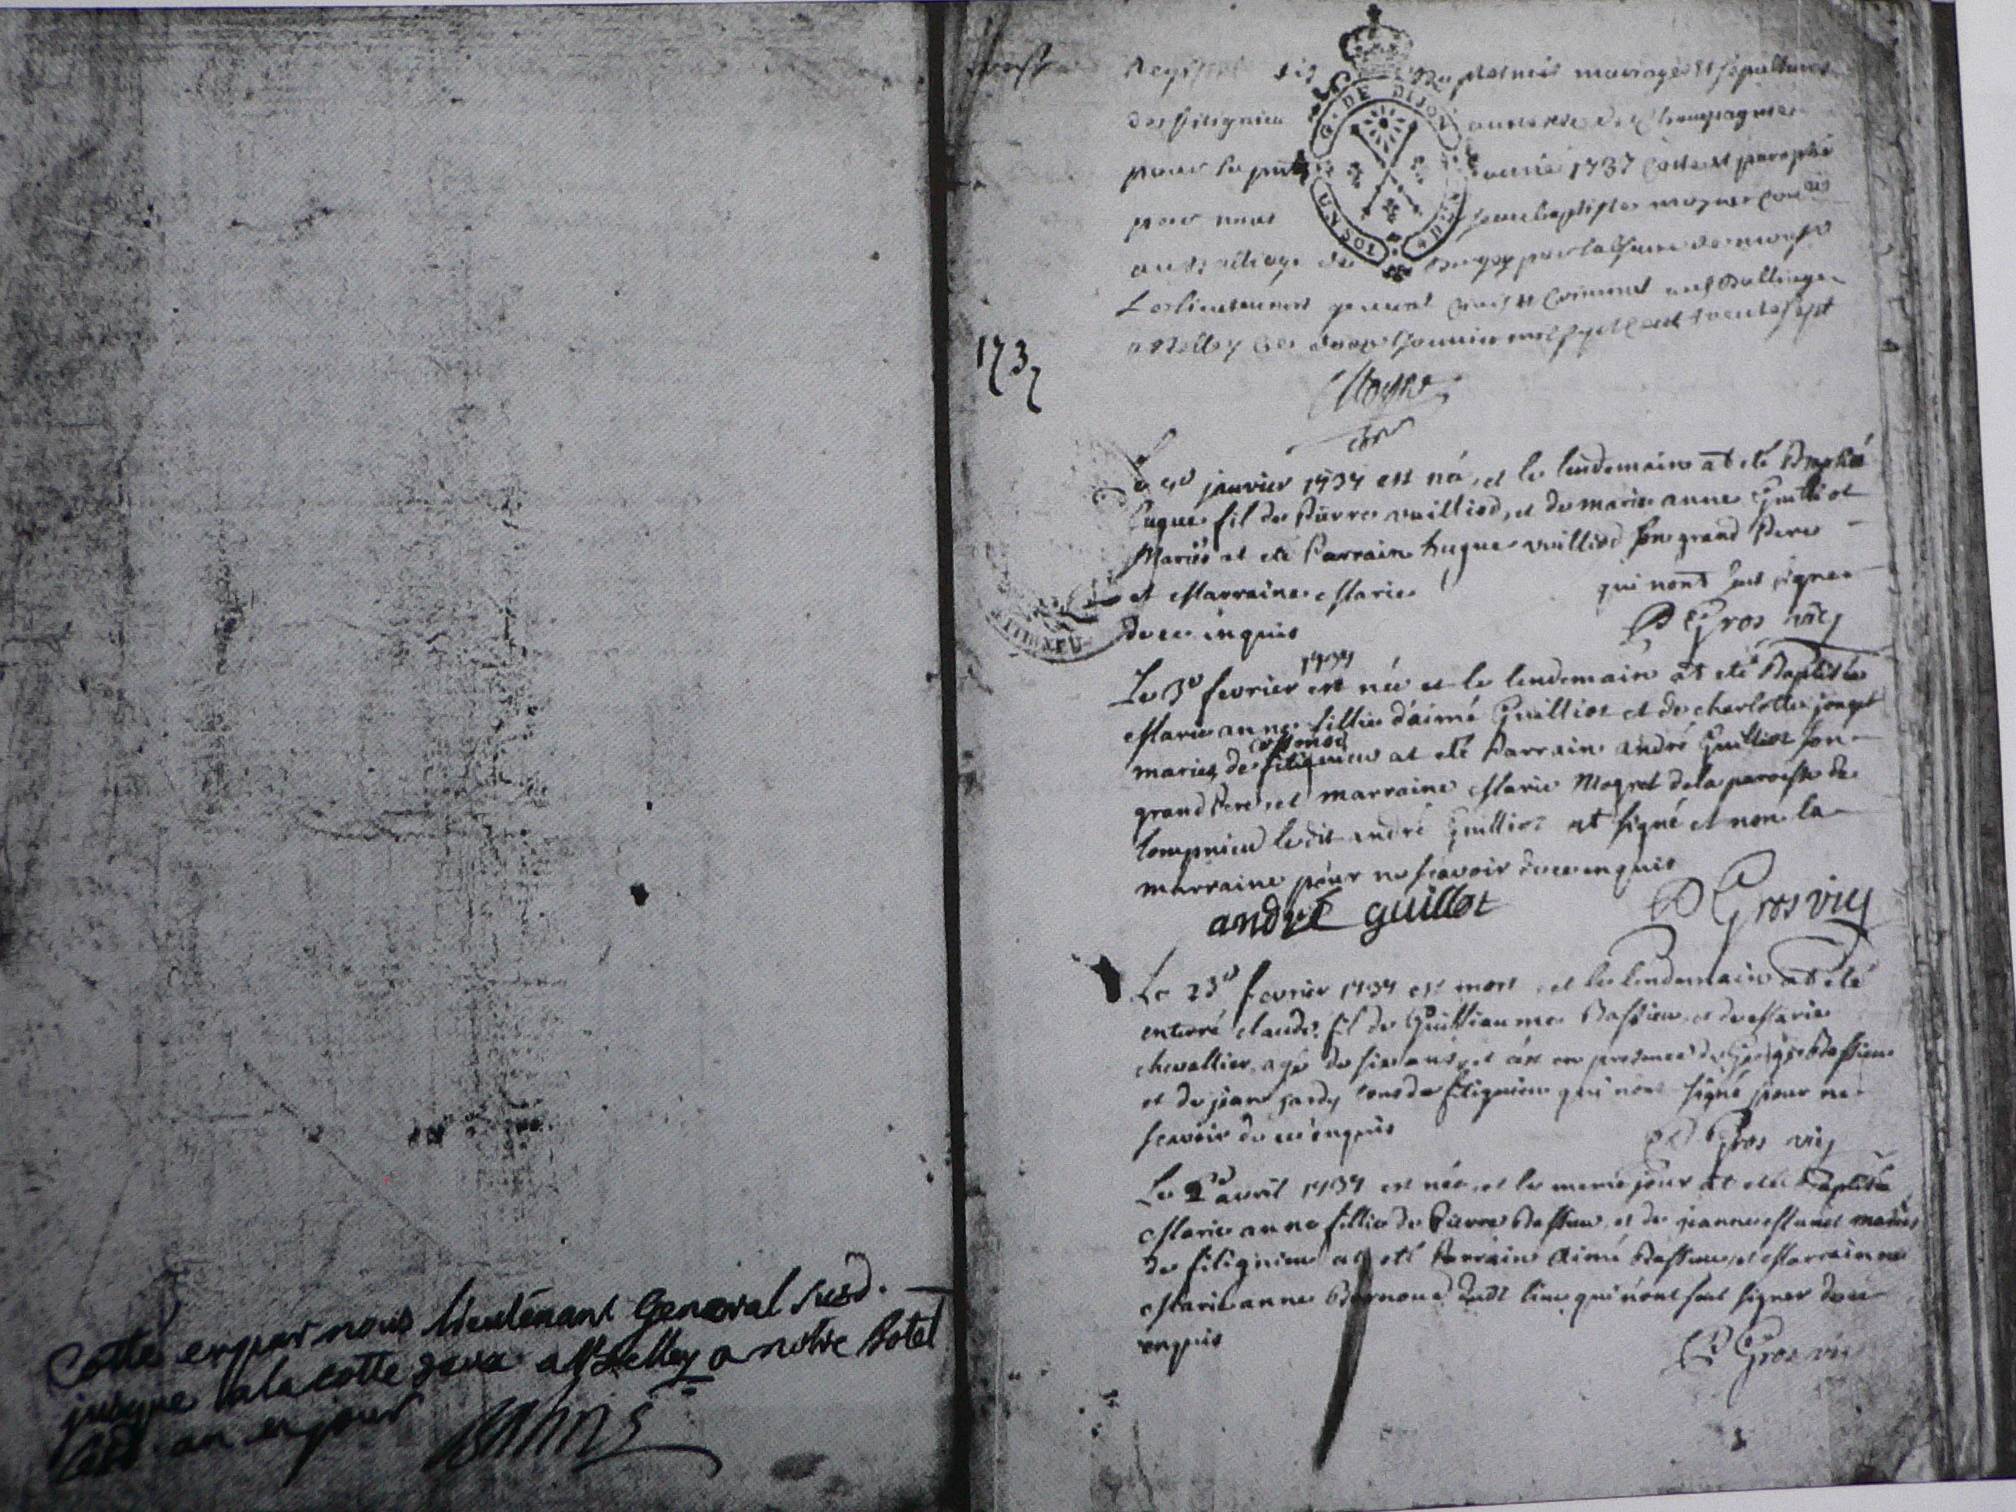 Cotté er par nous lieutenant General susd.
jusque a la cotte deux a Belley a notre hotel
lesd. an er jour
Registre des Baptesmes mariages et sepultures
de fitignieu annexe de Champagne
pour la pnte année 1737 Cotté et paraphé
par nous Jean baptiste
au Balliage de Bugey
Lieutenant general Civil et Criminel aud Balliage
a Belley le deux Janvier mil sept cent trente sept
G. DE DIJON
UN SOL
4 DEN
1737
Le janvier 1737 est né, et le lendemain at eté Baptisé
hugue fil de Pierre vuilliod, et de marie anne Guilliot
Mariés at eté Parrain hugue vuilliod son grand Pere
et Marraine Marie qui nont seus signer
de ce enquis
P Gros vic
Le 3e fevrier 1737 est née et le lendemain at eté Baptisée
Marie anne fillie d'aimé Guilliot et de charlotte jonget
mariés de fitignieu at eté Parrain andré Guilliot son
grand Pere, et marraine Marie Mogret de la paroisse de
lompnieu ledit andré Guilliot at signé et non la
marraine pour ne scavoir de ce enquis
andré guillot P Gros vic
Le 23e fevrier 1737 est mort, et le lendemain at eté
enterré claude fil de Guilliaume Bassieu, et de Marie
chevallier, agé de six ans, et cest en presence de George Bassieu
et de jean jardy tous de fitignieu qui n'ont signé pour ne
scavoir de ce enquis
P Gros vic
Le avril 1737 est née, et le meme jour at eté Baptisée
Marie anne fillie de Pierre Bassieu, et de jeanne Munet mariés
de fitignieu at eté Parrain Aimé Bassieu, et Marrainne
Marie anne Bernoud dudt lieu qui n'ont seut signer de ce
enquis
P Gros vic